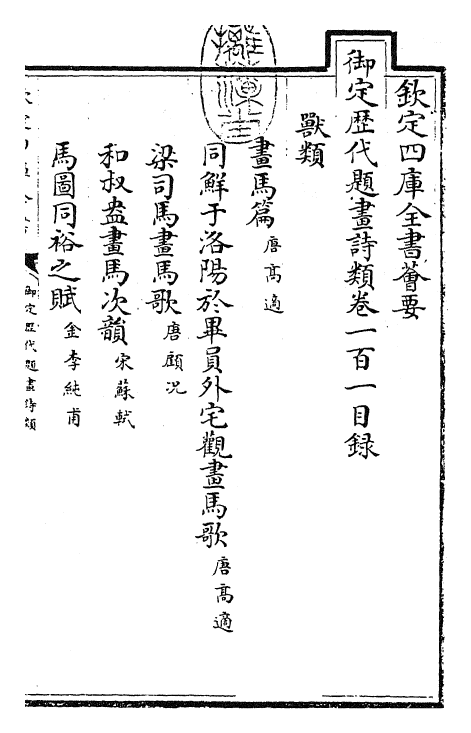 欽定四庫全書薈要
御定歴代題畫詩類卷一百一目録
獸類
畫馬篇 唐高適
同鮮于洛陽於畢員外宅觀畫馬歌 唐高適
梁司馬畫馬歌 唐顧况
和叔盎畫馬次韻 宋蘇軾
馬圖同裕之賦 金李純甫
御定歴代題畫詩類